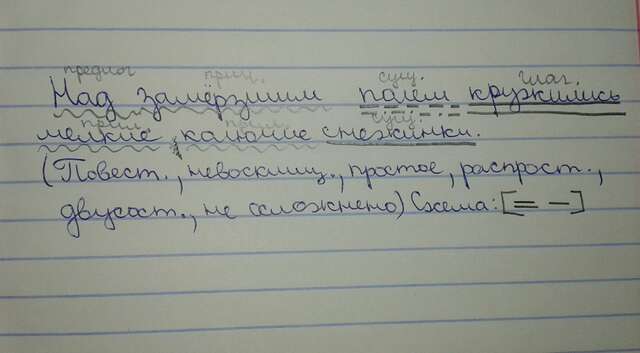 предлог прил. сущ. глаг.
Над замёрзшим полем кружились
прил. прил. сущ.
мелкие, колючие снежинки.
(Повест., невосклиц., простое, распрост.,
двусост., не осложнено) Схема: [= -]